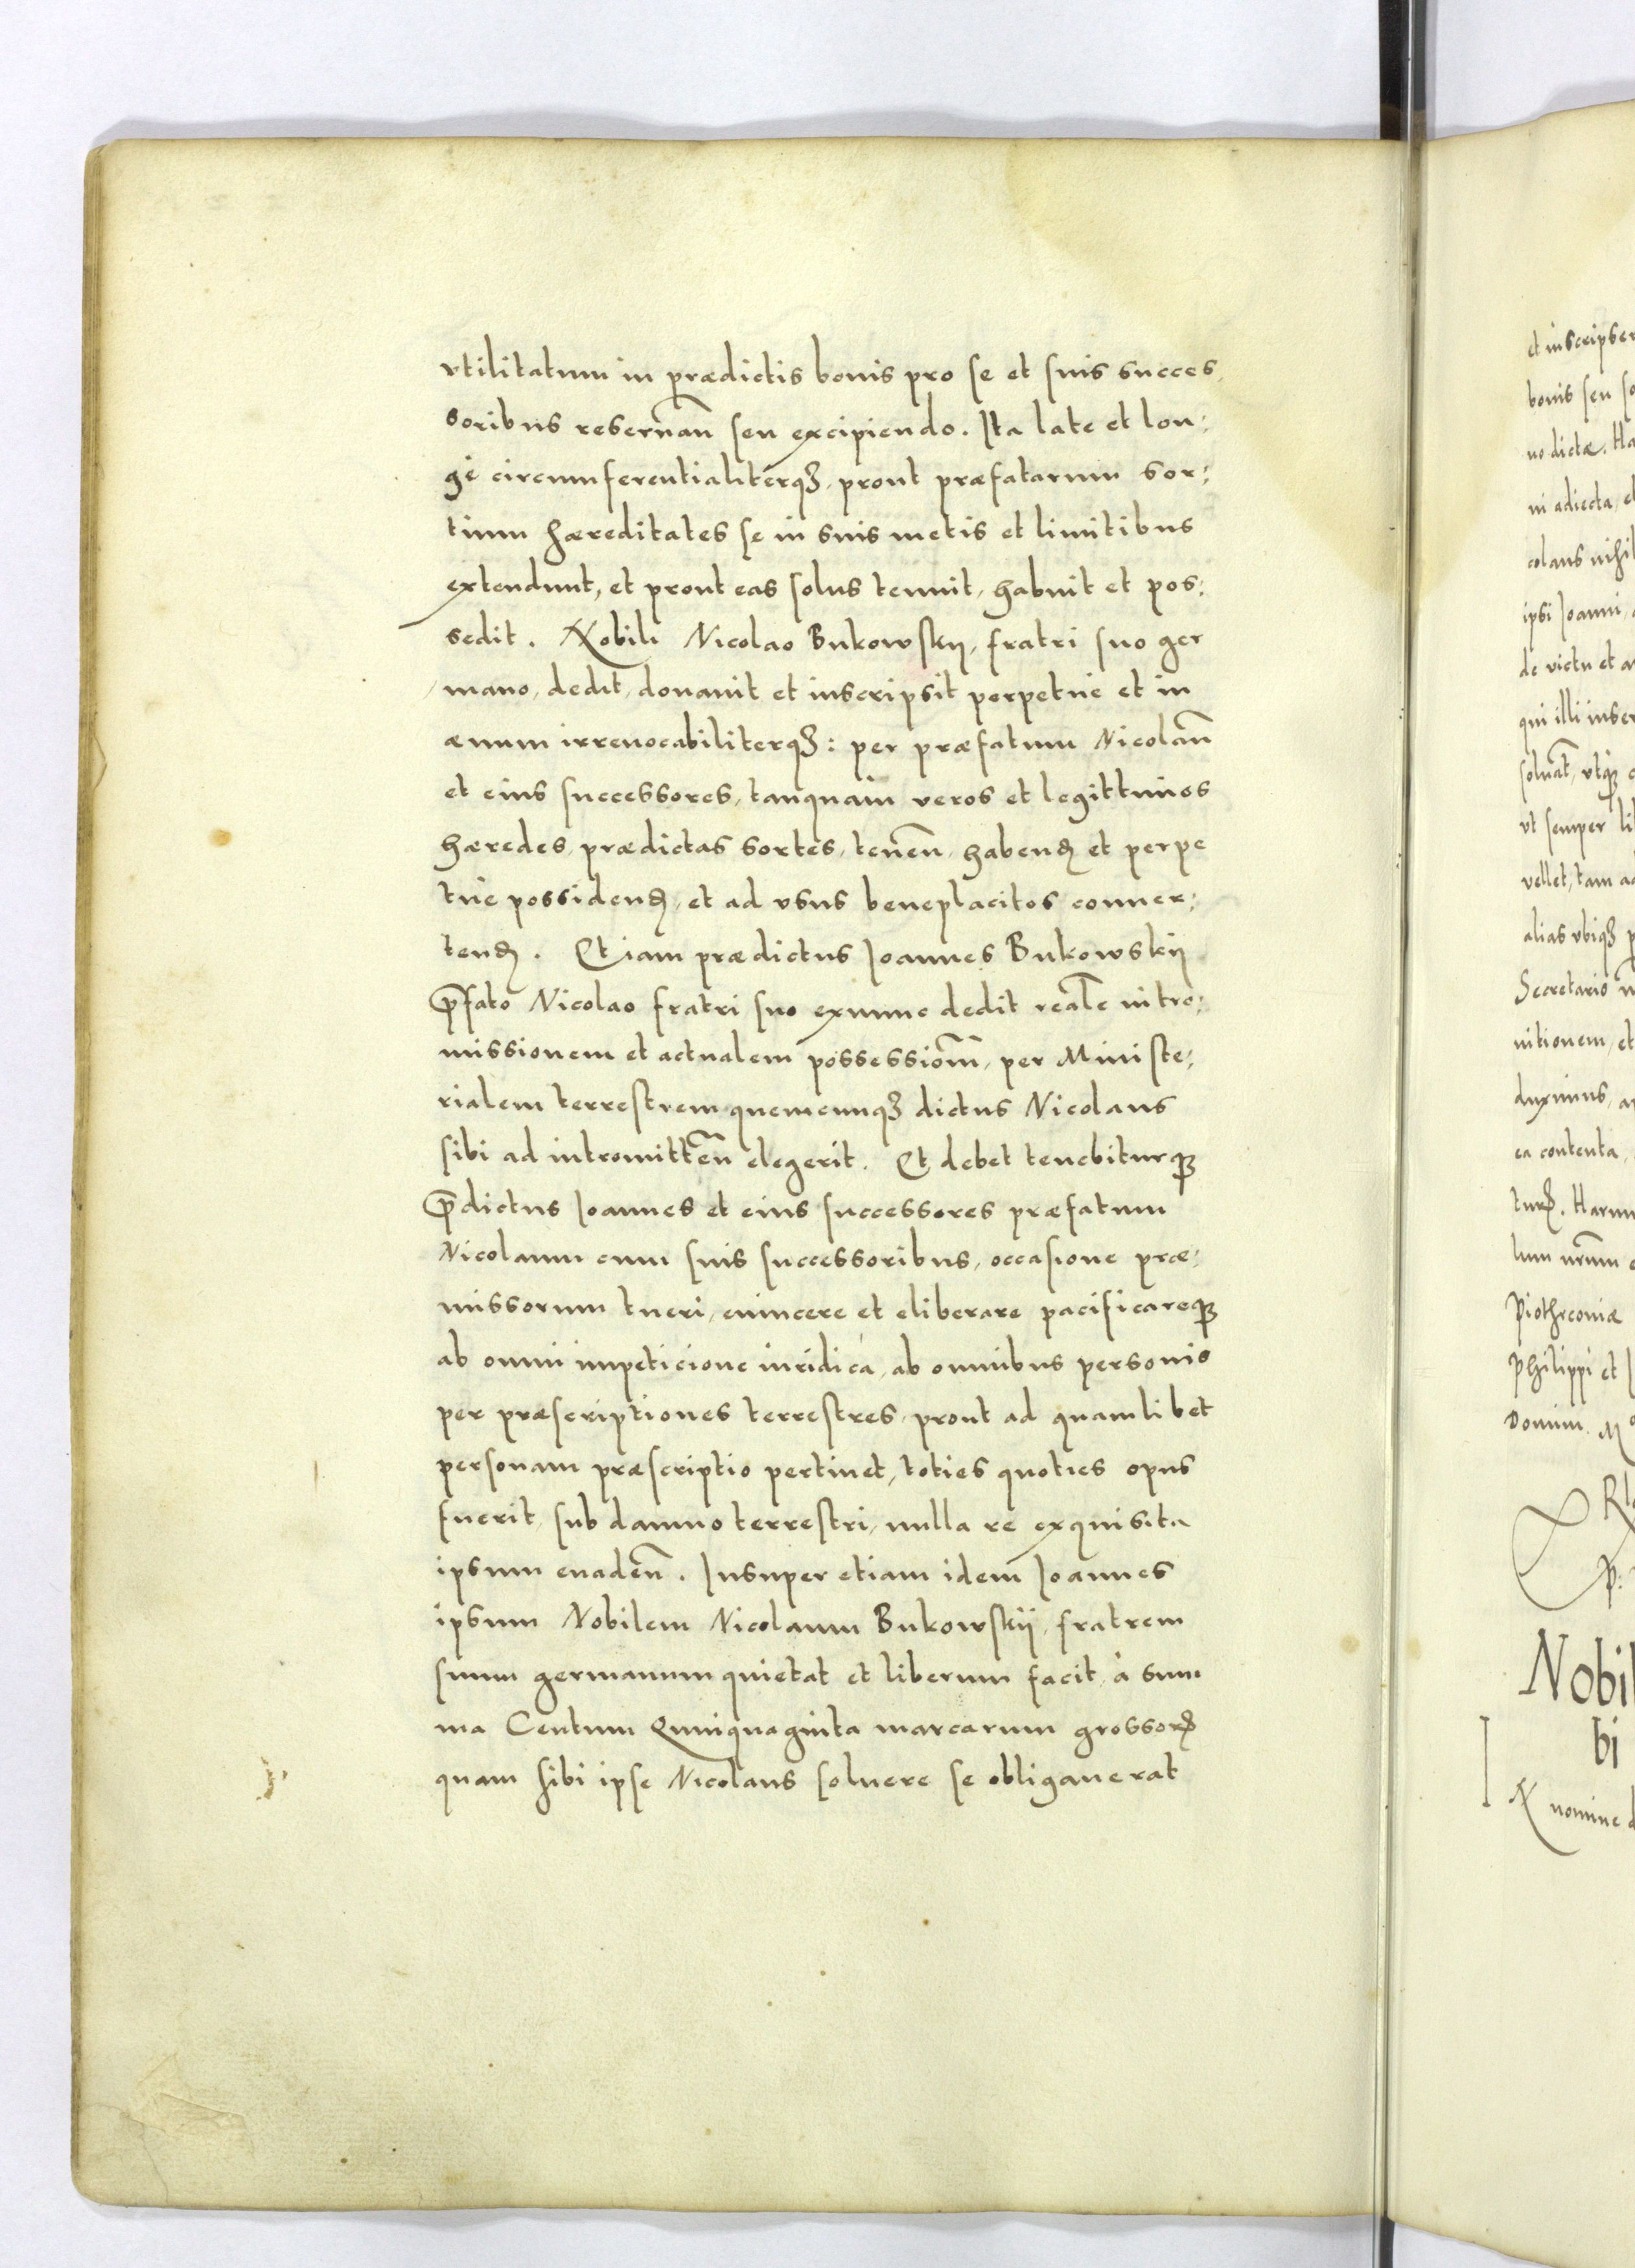 vtilitatum in prædictis bonis pro se et suis succes,
soribus reseruan̄ seu excipiendo. Ita late et lon:
gè circumferentialiterqȝ, prout præfatarum sor:
tium hæreditates se in suis metis et limitibus
extendunt, et prout eas solus tenuit, habuit et pos:
sedit. Nobili Nicolao Bukowskij, fratri suo ger
mano, dedit, donauit et inscripsit perpetue et in
æuum irreuocabiliterqȝ: per præfatum Nicolaū
et eius successores, tanquam veros et legittimos
hæredes, prædictas sortes, tenen̄, habenꝺ et perpe
tuè possidenꝺ, et ad vsus beneplacitos conuer:
tenꝺ. Etiam prædictus Joannes Bukowskij
p̄fato Nicolao fratri suo exnunc dedit realē intro:
missionem et actualem possessiom̄, per Ministe:
rialem terrestrem quemcunqȝ dictus Nicolaus
sibi ad intromitten̄ elegerit. Et debet tenebiturqȝ
p̄dictus Joannes et eius successores præfatum
Nicolaum cum suis successoribus, occasione præ:
missorum tueri, euincere et eliberare pacificareqȝ
ab omni impeticione iuridica, ab omnibus personis
per præscriptiones terrestres, prout ad quamlibet
personam præscriptio pertinet, toties quoties opus
fuerit, sub damno terrestri, nulla re exquisita
ipsum euaden̄. Insuper etiam idem Joannes
ipsum Nobilem Nicolaum Bukowskij, fratrem
suum germanum quietat et liberum facit, à sum
ma Centum Quinquaginta marcarum grossorꝝ
quam sibi ipse Nicolaus soluere se obligauerat
et inscripser
bonis seu so
no dictæ. Ha
ni adiecta, et
colaus nihil
ipsi Joanni,
de victu et a
qui illi inser
soluat, vtqȝ
vt semper li
vellet, tam a
alias vbiqȝ p
Secretario n
nitionem, et
duximus, a
ea contenta,
turꝝ. Harum
lum nr̄um
Piothrconiæ
Philippi et J
Domini M
Nobil
bi
nomine d